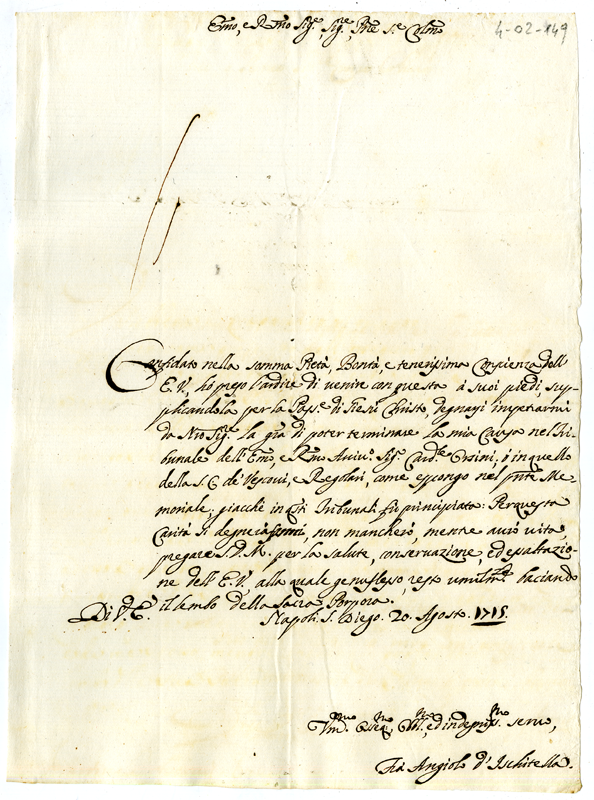 4-02-149
Emo, e Rmo Sigre, Sigre, Pne S.e Colmo
Confidato nella somma Pietà, Bontà, e tenerissima Conscienza dell'
E.V., hò preso l'ardire di venire con questa à suoi piedi, sup=
plicandola per la Pass.e di Giesù Christo, degnarsi impetrarmi
da Nro Sigre la grã di poter terminare la mia Causa nel Tri=
bunale dell'Emo, e Rmo Arciv.o Sig.r Card.le Orsini, ò in quello
della S.C. de' Vescovi, e Regolari, come espongo nel pñte Me=
moriale, giacchè in qsti Tribunali fù principiata: Per questa
Carità si degnerà farmi, non mancherò, mentre avrò vita,
pregare S.D.M. per la salute, conservazione, ed esaltazio=
ne dell'E.V., alla quale genuflesso, resto umilmte baciando
Di V.E. il lembo della Sacra Porpora.
Napoli. S. Diego. 20. Agosto. 1715.
Vmo. Osseqmo, Obl.mo, ed indegnismo servo,
Frà Angiolo d'Ischitella.